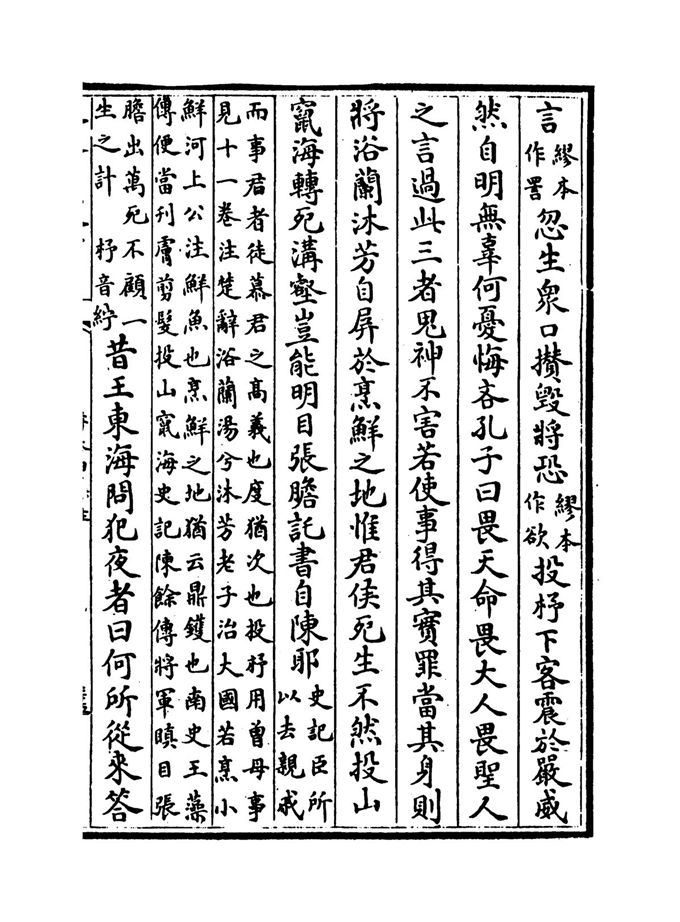 言繆本作詈忽生衆口攅毀將恐繆本作欲投杼下客震於嚴威
然自明無辜何憂悔吝孔子曰畏天命畏大人畏聖人
之言過此三者鬼神不害若使事得其實罪當其身則
將浴蘭沐芳自屏於烹鮮之地惟君侯死生不然投山
竄海轉死溝壑豈能明目張膽託書自陳耶史記臣所以去親戚
而事君者徒慕君之髙義也度猶次也投杼用曾母事
見十一卷注楚辭浴蘭湯兮沐芳老子治大國若烹小
鮮河上公注鮮魚也烹鮮之地猶云鼎鑊也南史王藻
傳便當刋膚剪髮投山竄海史記陳餘傳將軍瞋目張
膽出萬死不顧一生之計　杼音紵昔王東海問犯夜者曰何所從來答